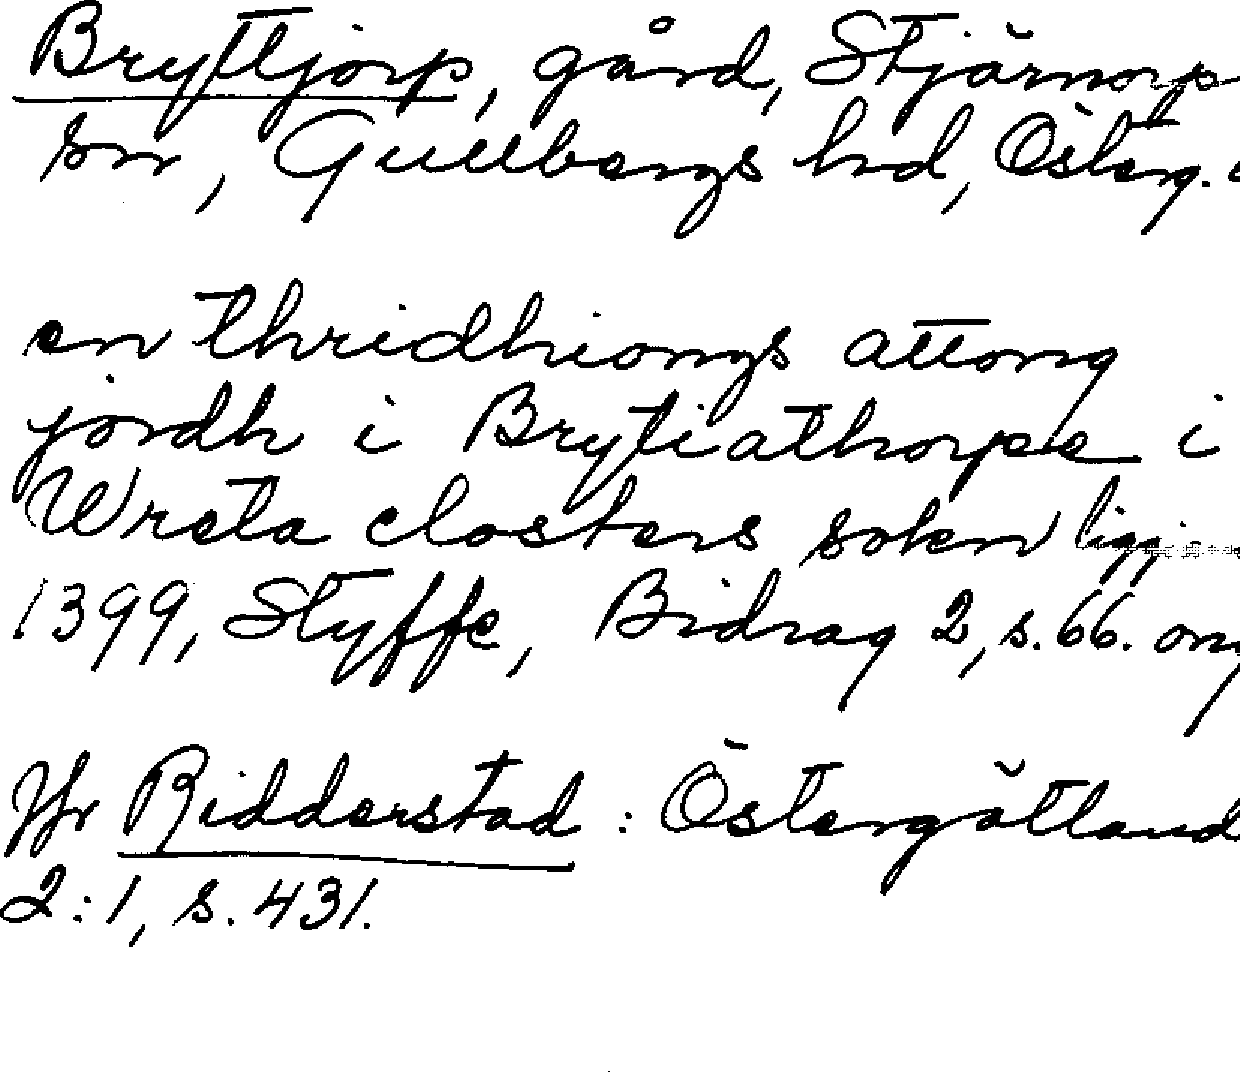 Bryttjorp, gård, Stjärnorp
sn, Gullbergs hd, Österg.
en thridhiongs attong
jordh i Brytiathorpe i
Wreta closters sokn
1399, Styffe, Bidrag 2, s. 66.
Jfr Ridderstad: Östergötland
2:1, s. 431.